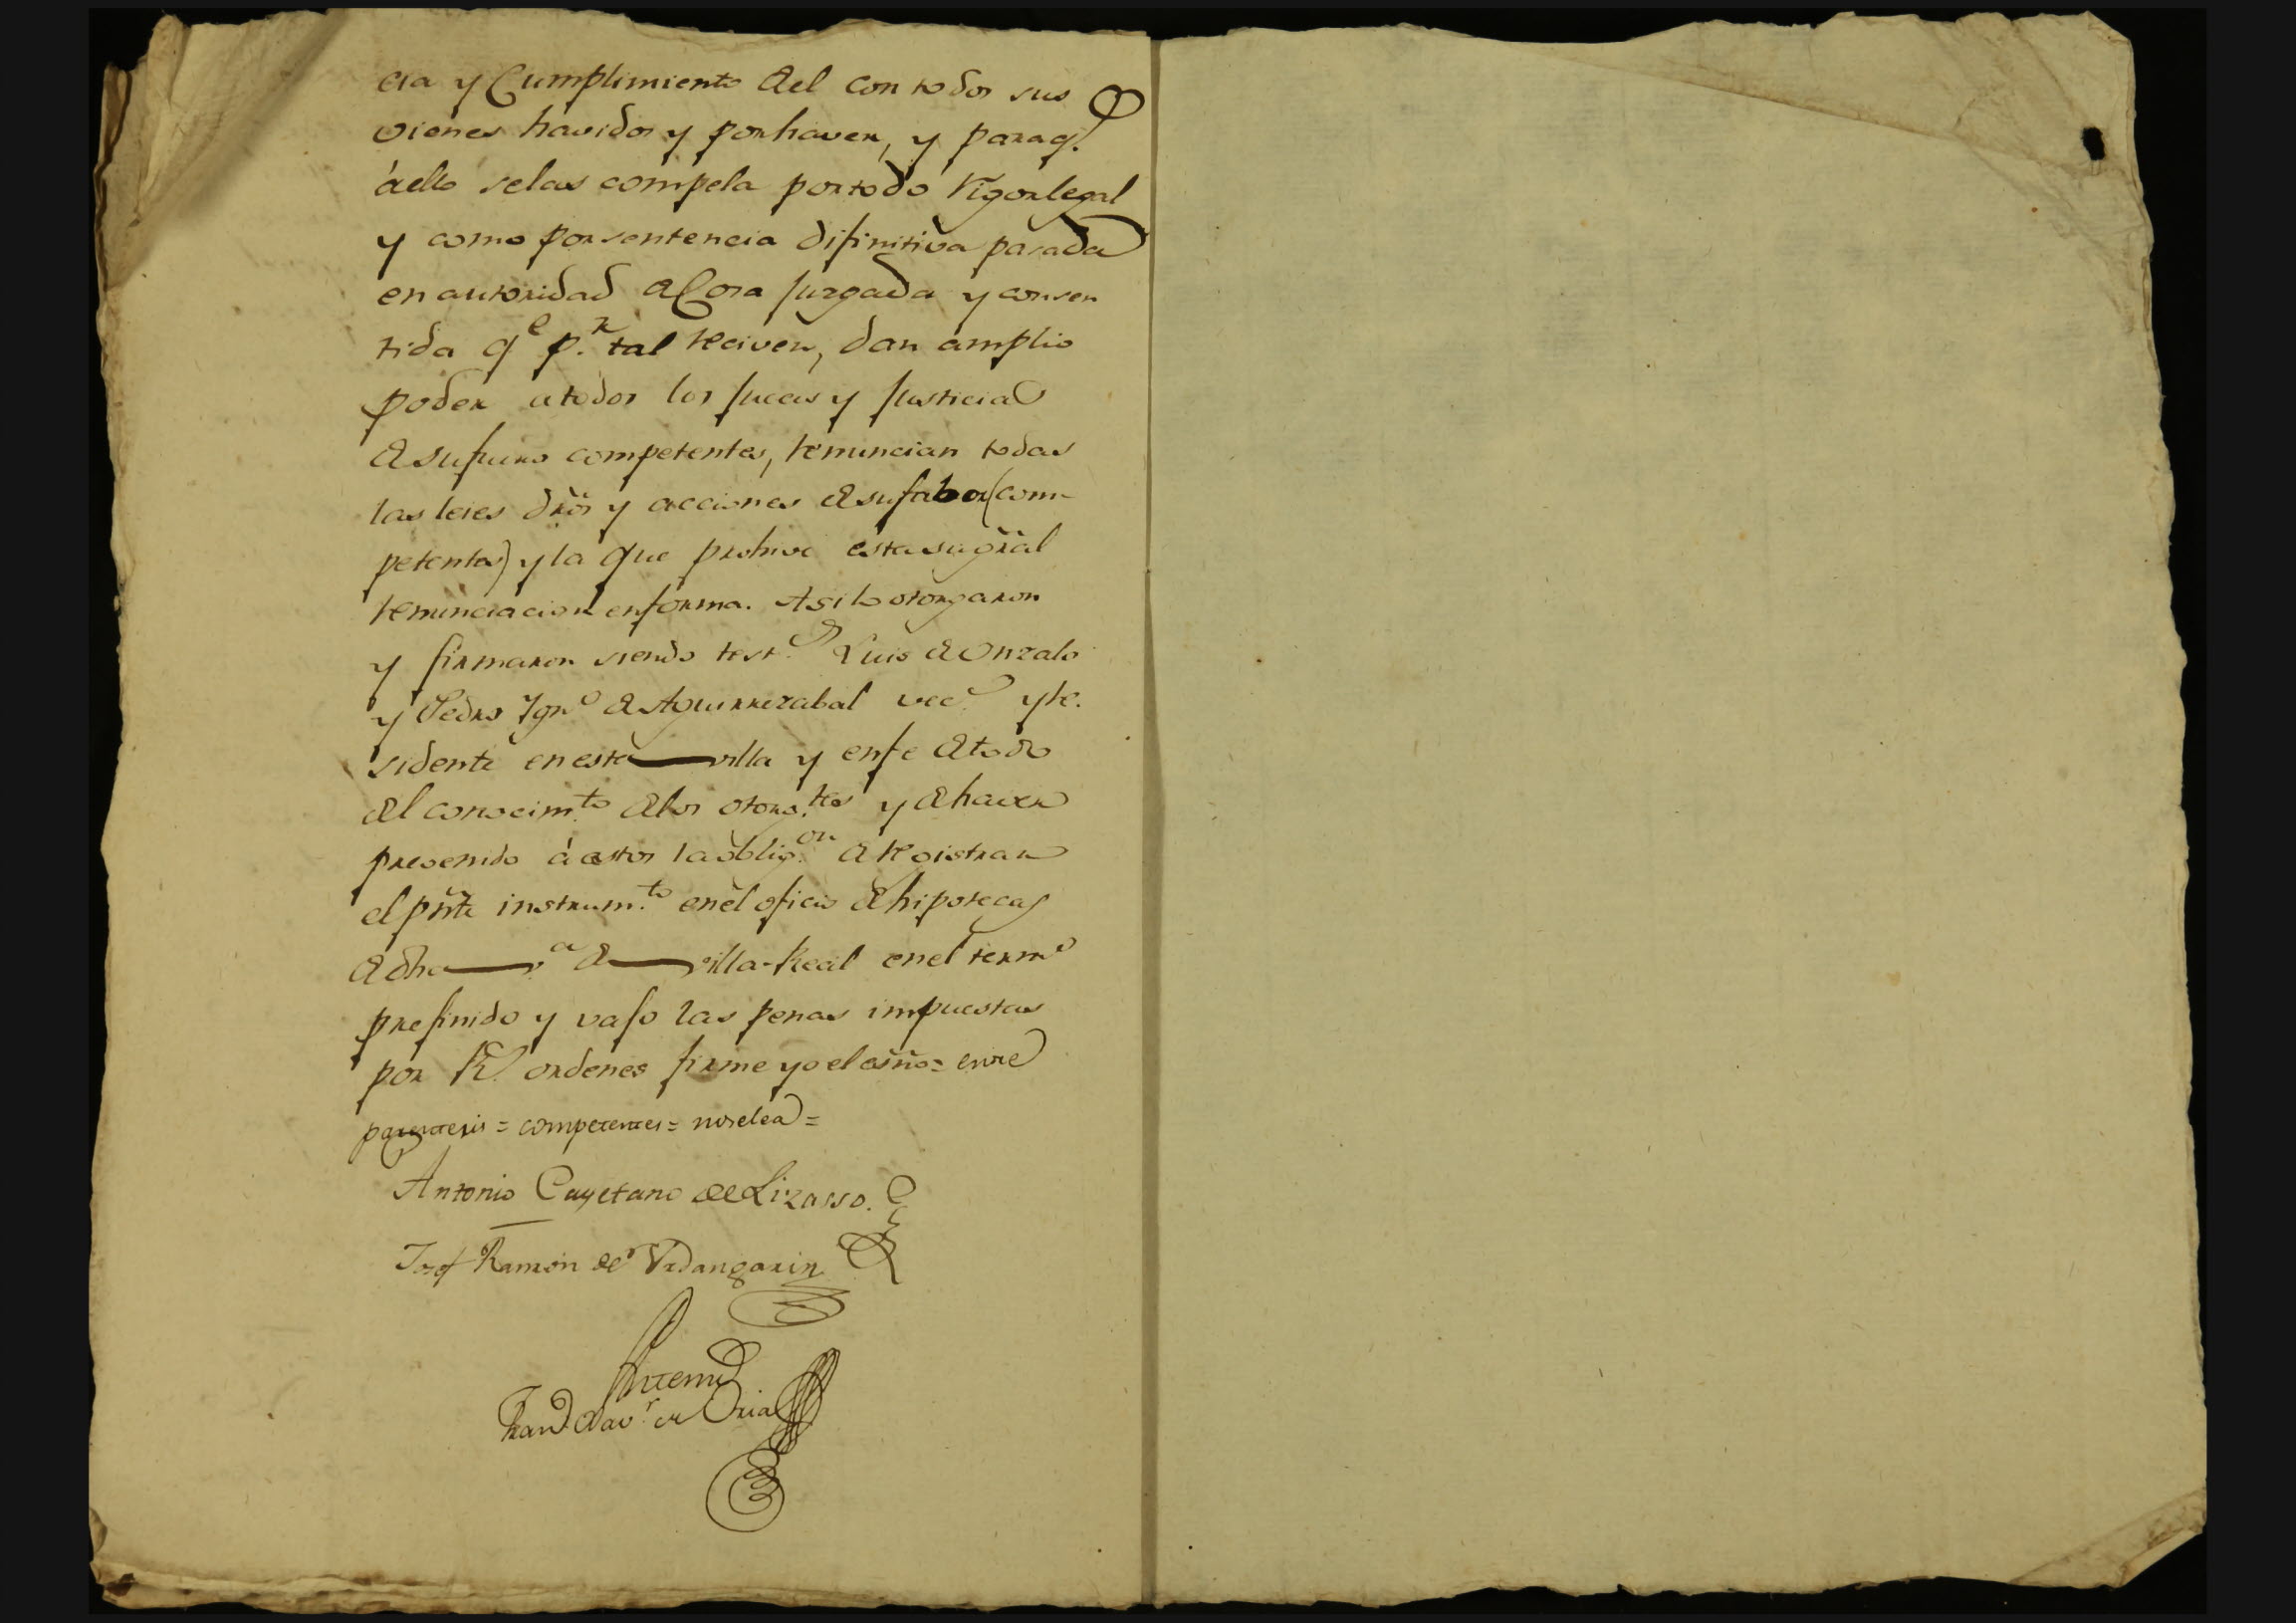 cia y Cumplimiento del con todos sus
vienes havidos y por haver, y para q.e
á ello se las compela por todo rigor legal
y como por sentencia difinitiva pasada
en autoridad de Cosa juzgada y consen
tida q.e p.r tal reciven, dan amplio
poder a todos los jueces y justicias
de su fuero competentes, renuncian todas
las leies dr̃os y acciones de su fabor (com-
petentes) y la que prohive esta su gr̃al
renunciacion en forma. Asi lo otorgaron
y firmaron siendo test.s Luis de Onzalo
y Pedro Ign.o de Aguirrezabal vec.s y re.
sidente en esta villa y en fe de todo
del conocim.to de los otorg.tes y de haver
prevenido á estos la oblig.on de registrar
el pñte instrum.to en el oficio de hipotecas
de dha v.a de villa-Real en el term.o
prefinido y vajo las penas impuestas
por R.s ordenes firme yo el esño = entre
parentesis = competentes = no se lea =
Antonio Cayetano de Lizasso.
Josef Ramon de Urdangarin
Ante mi
Fran.co Xav.r de Oria